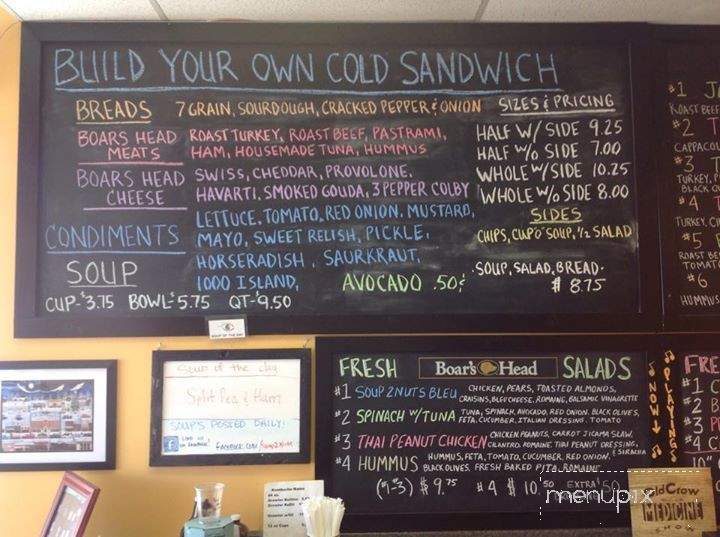 BUILD YOUR OWN COLD SANDWICH
BREADS 7 GRAIN, SOURDOUGH, CRACKED PEPPER & ONION
BOARS HEAD MEATS ROAST TURKEY, ROAST BEEF, PASTRAMI,
HAM, HOUSEMADE TUNA, HUMMUS
BOARS HEAD CHEESE SWISS, CHEDDAR, PROVOLONE,
HAVARTI, SMOKED GOUDA, 3 PEPPER COLBY
CONDIMENTS LETTUCE, TOMATO, RED ONION, MUSTARD,
MAYO, SWEET RELISH, PICKLE,
HORSERADISH, SAURKRAUT,
1000 ISLAND,
AVOCADO .50¢
SOUP
CUP-$3.75 BOWL $5.75 QT-$9.50
SIZES & PRICING
HALF W/ SIDE 9.25
HALF W/o SIDE 7.00
WHOLE W/ SIDE 10.25
WHOLE W/o SIDE 8.00
SIDES
CHIPS, CUP O' SOUP, 1/2 SALAD
SOUP, SALAD, BREAD.
$8.75
#1
ROAST BEEF
#2
CAPPACOL
#3 T
TURKEY, P
BLACK O
#4
TURKEY, C
#5
ROAST BE
TOMAT
#6
HUMMUS
SOUP OF THE DAY
Soup of the day
Split Pea & Ham
SOUP'S POSTED DAILY!
LIKE US ON FACEBOOK
FRESH Boar's Head SALADS
#1 SOUP 2 NUTS BLEU CHICKEN, PEARS, TOASTED ALMONDS,
CRAISINS, BLEU CHEESE, ROMAINE, BALSAMIC VINAIGRETTE
#2 SPINACH W/ TUNA TUNA, SPINACH, AVOCADO, RED ONION, BLACK OLIVES,
FETA, CUCUMBER, ITALIAN DRESSING, TOMATO
#3 THAI PEANUT CHICKEN CHICKEN, PEANUTS, CARROT JICAMA SLAW,
CILANTRO, ROMAINE, THAI PEANUT DRESSING,
& SIRACHA
#4 HUMMUS HUMMUS, FETA, TOMATO, CUCUMBER, RED ONION,
BLACK OLIVES, FRESH BAKED PITA, ROMAINE
(1-3) $9.75 #4 $10.50 EXTRA
NOW PLAYING
FRE
#1
#2
#3
#4
10"
menupix
Old Crow
MEDICINE
SHOW